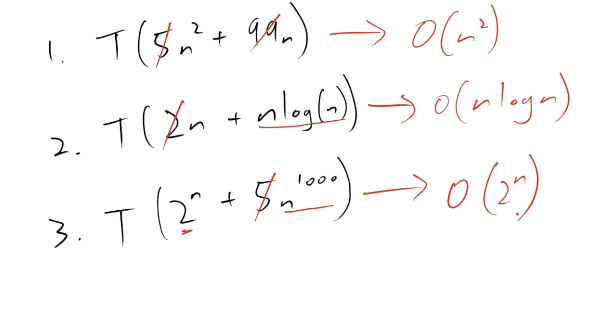 1. T(5n² + 99n) → O(n²)
2. T(2n + nlog(n)) → O(nlogn)
3. T(2ⁿ + 5n¹⁰⁰⁰) → O(2ⁿ)